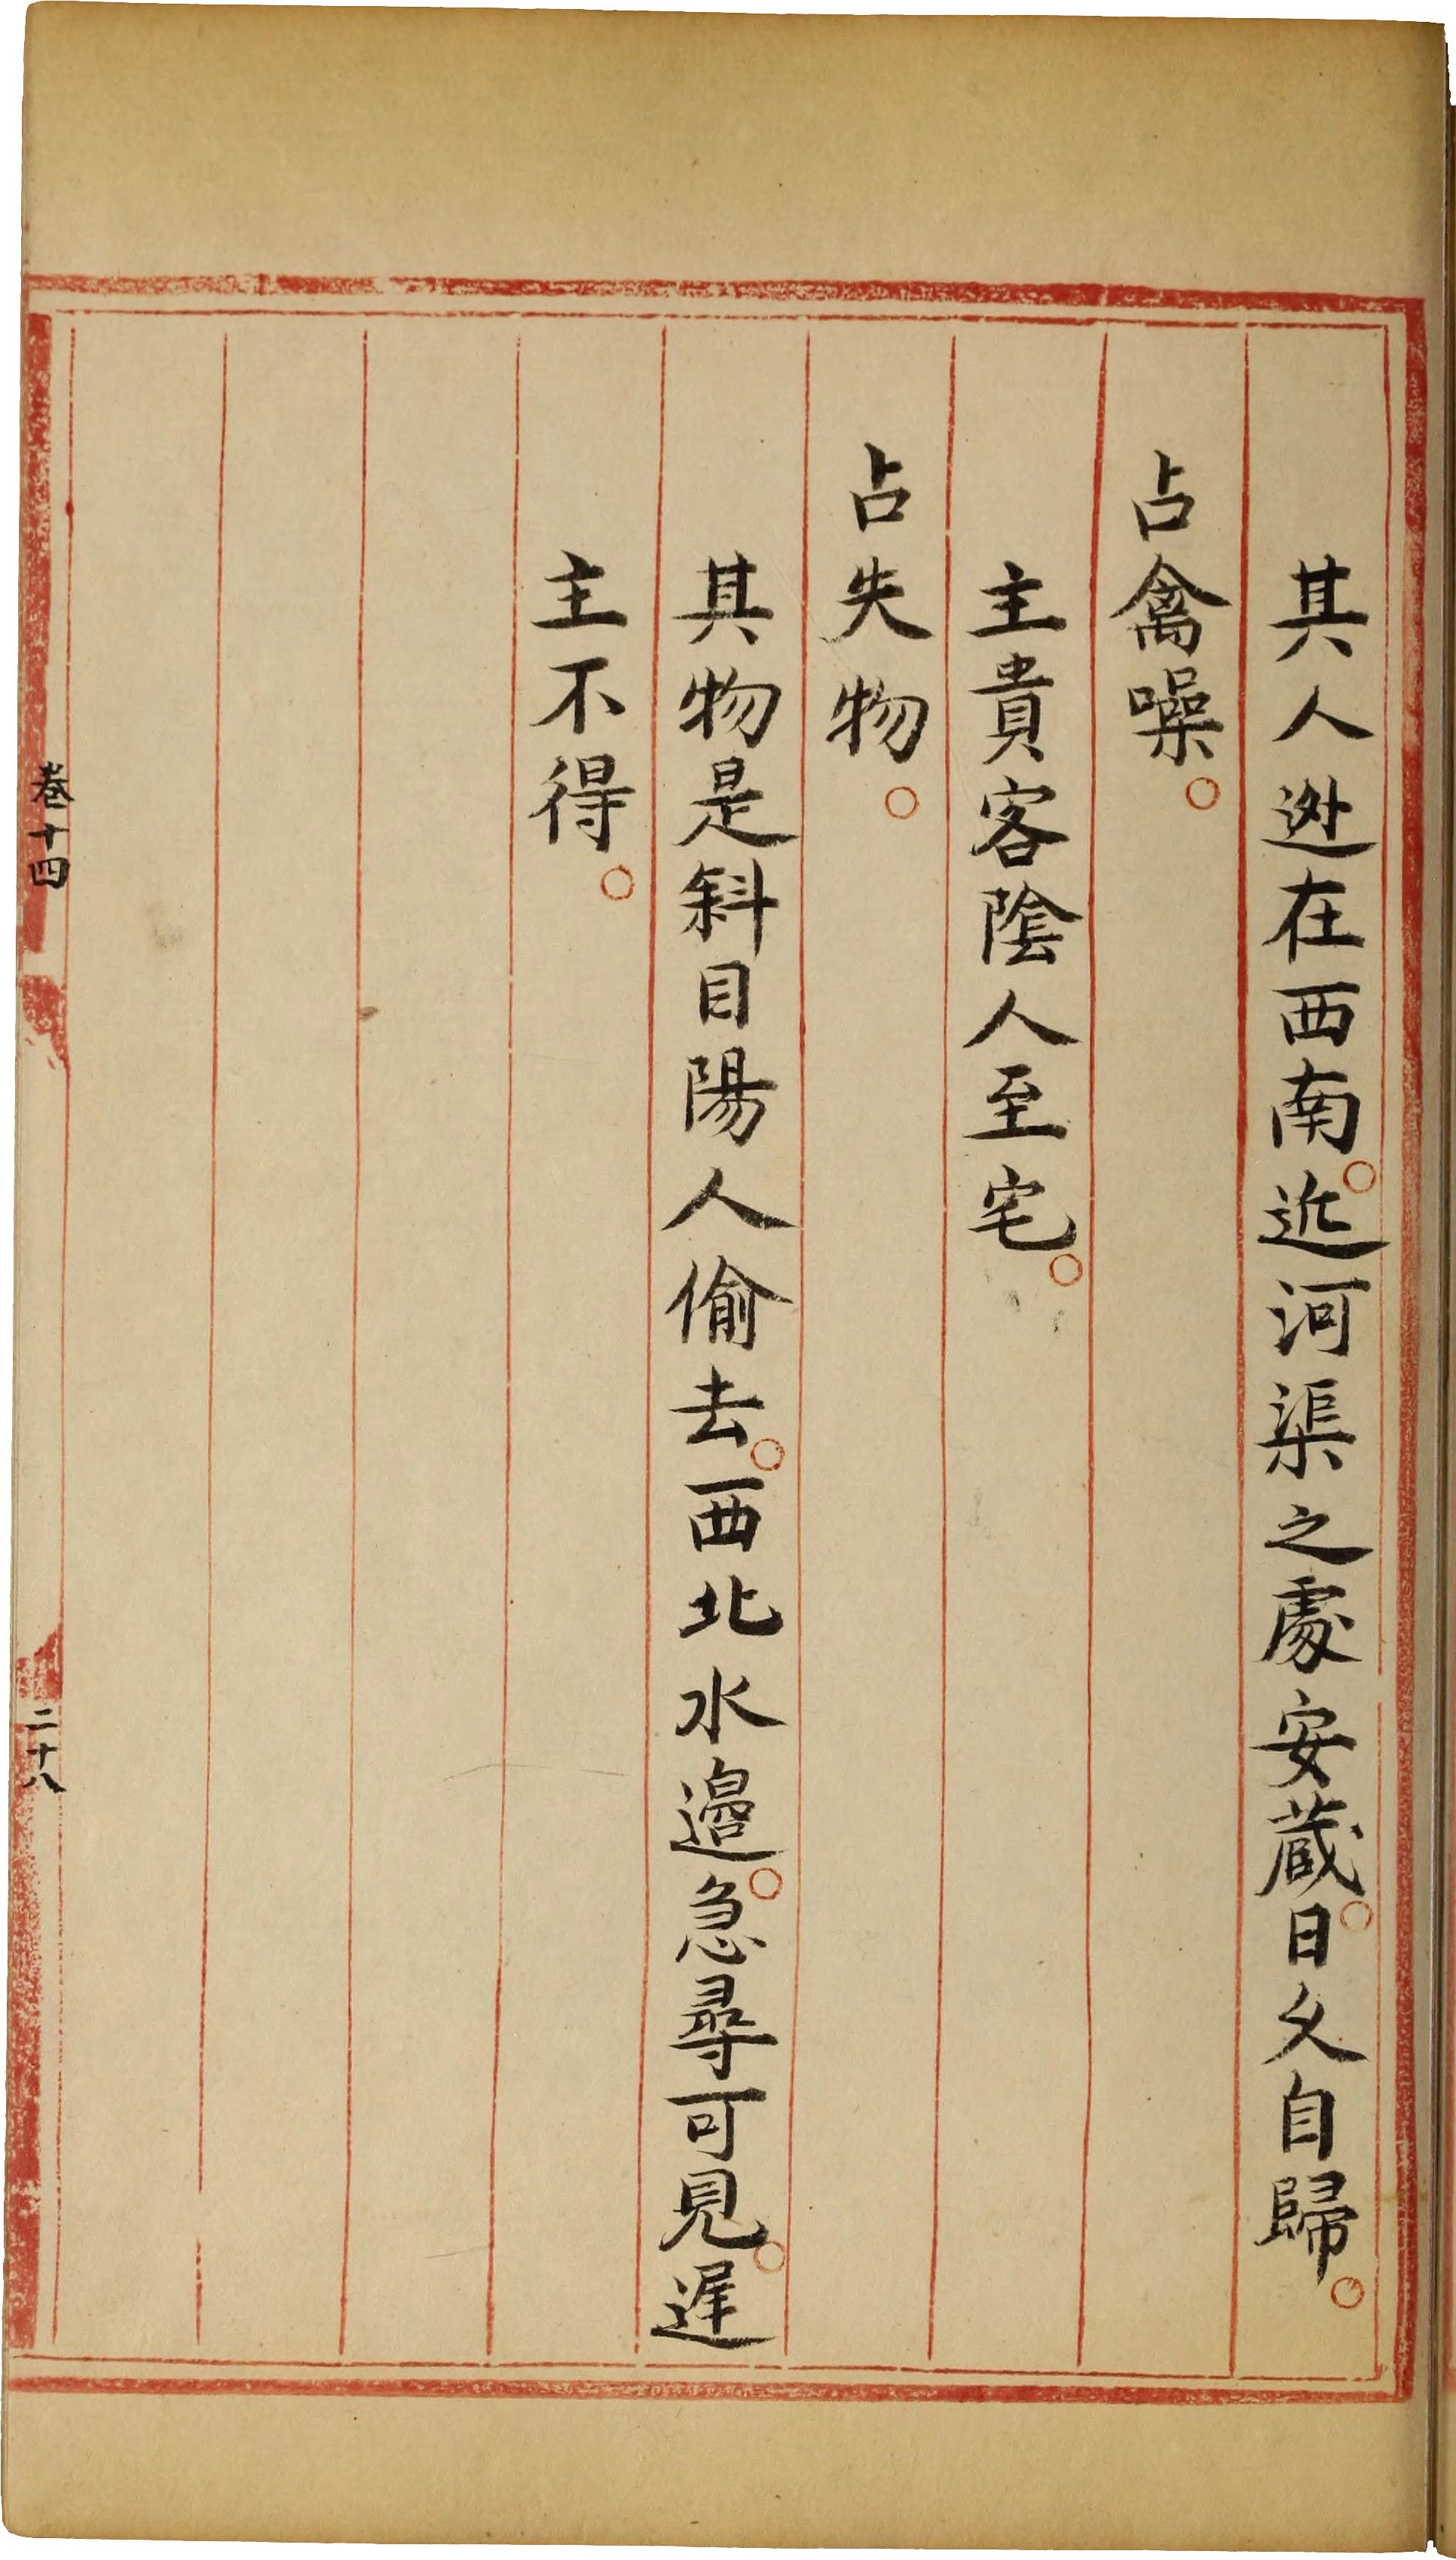 其人迯在西南。近河渠之處安蔵。日久自歸。
占禽噪。
主貴客隂人至宅。
占失物。
其物是斜目陽人偷去。西北水邉。急尋可見。遅
主不得。
卷十四
二十八